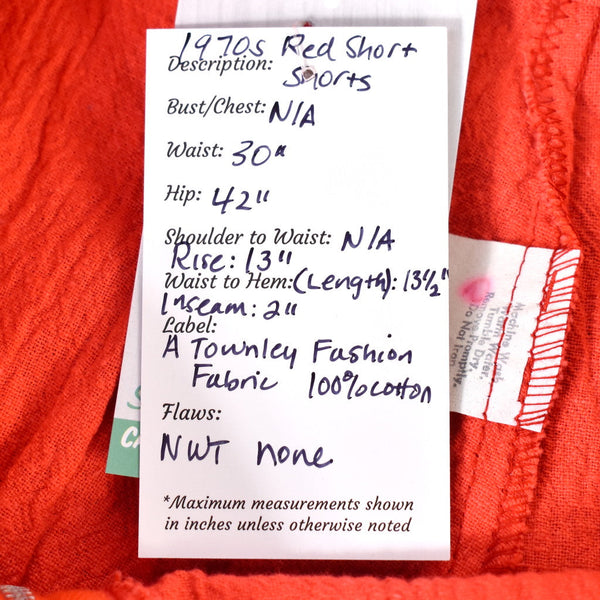 1970s Red Short
Description: Shorts
Bust/Chest: N/A
Waist: 30"
Hip: 42"
Shoulder to Waist: N/A
Rise: 13"
Waist to Hem: (Length): 13½"
Inseam: 2"
Label:
A Townley Fashion
Fabric 100% cotton
Flaws:
NWT none
*Maximum measurements shown
in inches unless otherwise noted
Machine Wash
Warm Water.
Tumble Dry.
Remove Promptly.
Do Not Iron.